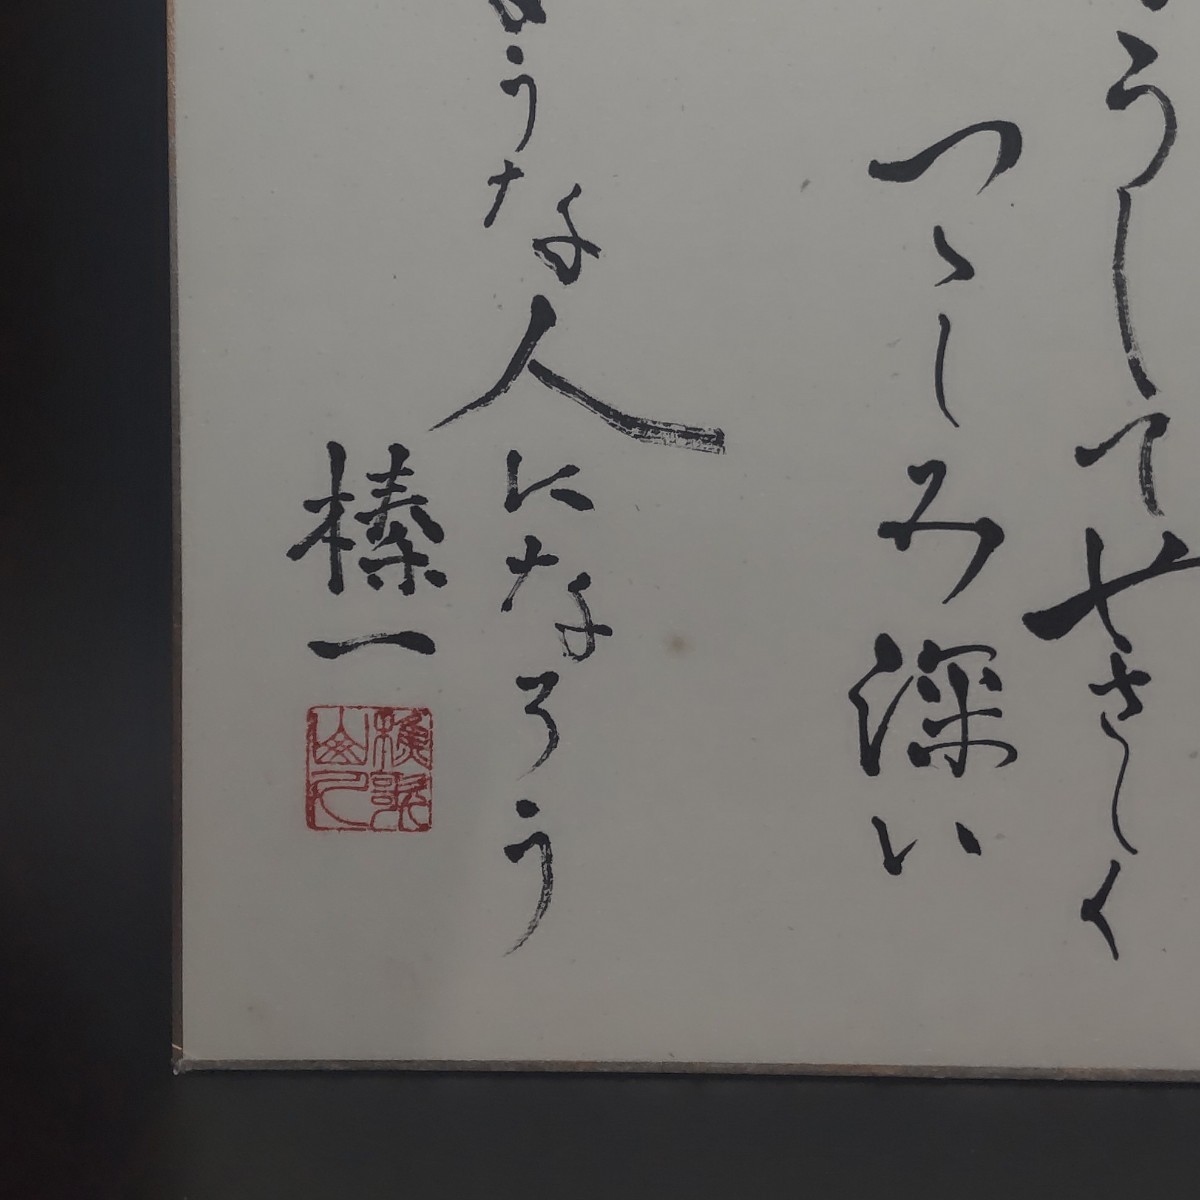 うしてやさしく
つゝしみ深い
うな人になろう
榛一